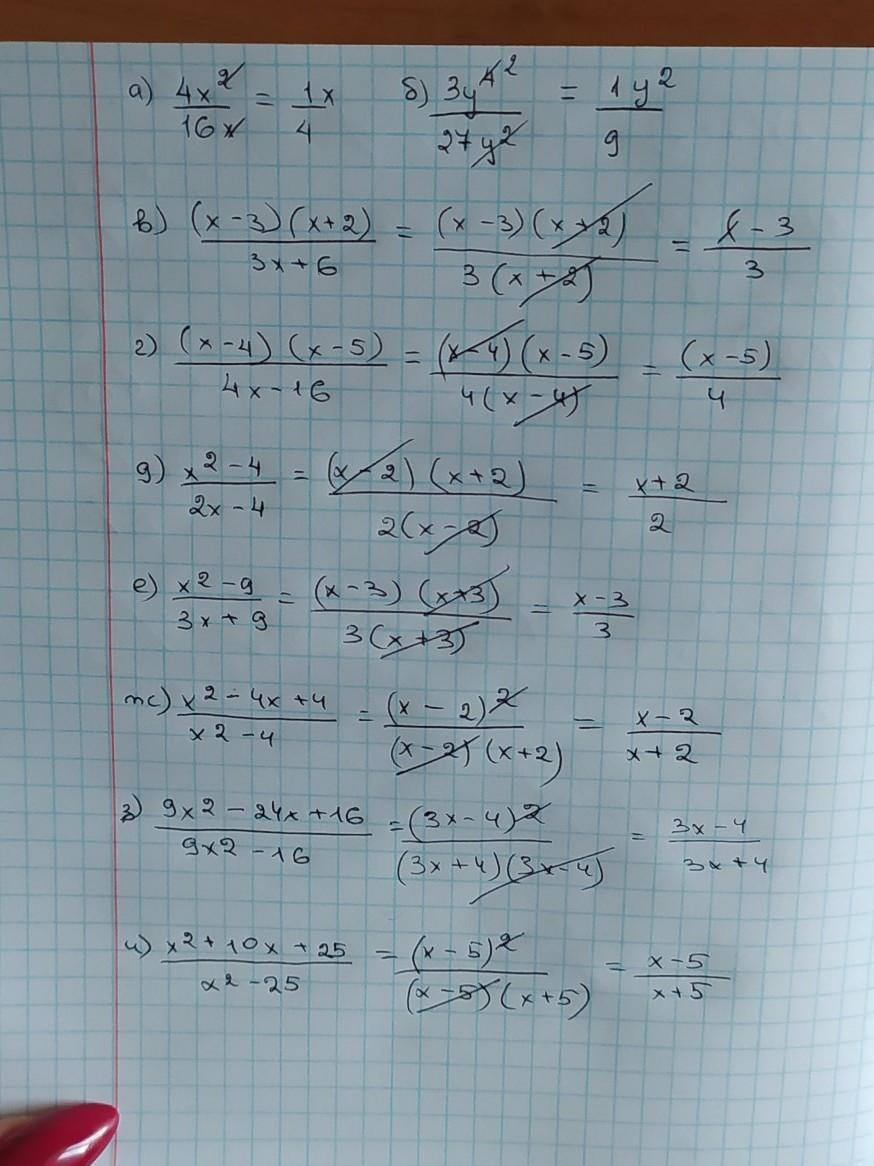 а) 4x²/16x = 1x/4 б) 3y⁴ ²/27y² = 1y²/9
в) (x-3)(x+2)/3x+6 = (x-3)(x+2)/3(x+2) = x-3/3
г) (x-4)(x-5)/4x-16 = (x-4)(x-5)/4(x-4) = (x-5)/4
д) x²-4/2x-4 = (x-2)(x+2)/2(x-2) = x+2/2
е) x²-9/3x+9 = (x-3)(x+3)/3(x+3) = x-3/3
ж) x²-4x+4/x²-4 = (x-2)²/(x-2)(x+2) = x-2/x+2
з) 9x²-24x+16/9x²-16 = (3x-4)²/(3x+4)(3x-4) = 3x-4/3x+4
и) x²+10x+25/x²-25 = (x-5)²/(x-5)(x+5) = x-5/x+5